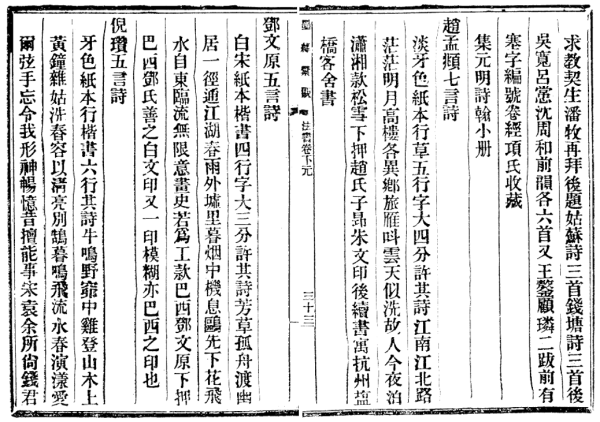 求教契生潘牧再拜後題姑蘇詩三首錢塘詩三首後
吳寬呂㦂沈周和前韻各六首又王鏊顧璘二跋前有
塞字編號卷經項氏收藏
集元明詩翰小册
趙孟頫七言詩
淡牙色紙本行草五行字大四分許其詩江南江北路
茫茫明月高樓各異鄉旅雁呌雲天似洗故人今夜泊
瀟湘款松雪下押趙氏子昂朱文印後續書寓杭州塩
橋客舍書
墨緣彙觀 法書卷下元 三十三
鄧文原五言詩
白宋紙本楷書四行字大三分許其詩芳草孤舟渡幽
居一徑通江湖春雨外墟里暮烟中機息鷗先下花飛
水自東臨流無限意畫史若爲工款巴西鄧文原下押
巴西鄧氏善之白文印又一印模糊亦巴西之印也
倪瓚五言詩
牙色紙本行楷書六行其詩牛鳴野窌中雞登山木上
黃鐘雜姑洗舂容以清亮別鵠暮鳴飛流水春演漾愛
爾弦手忘令我形神暢憶昔擅能事宋袁余所尙錢君